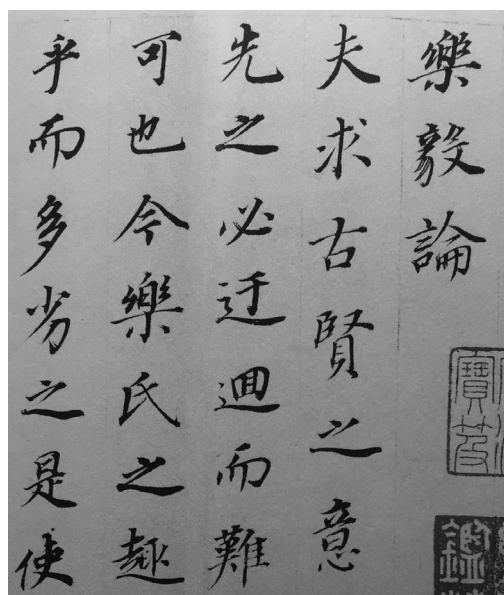 樂毅論
夫求古賢之意
先之必迂迴而難
可也今樂氏之趣
乎而多劣之是使
寶笈
鑑